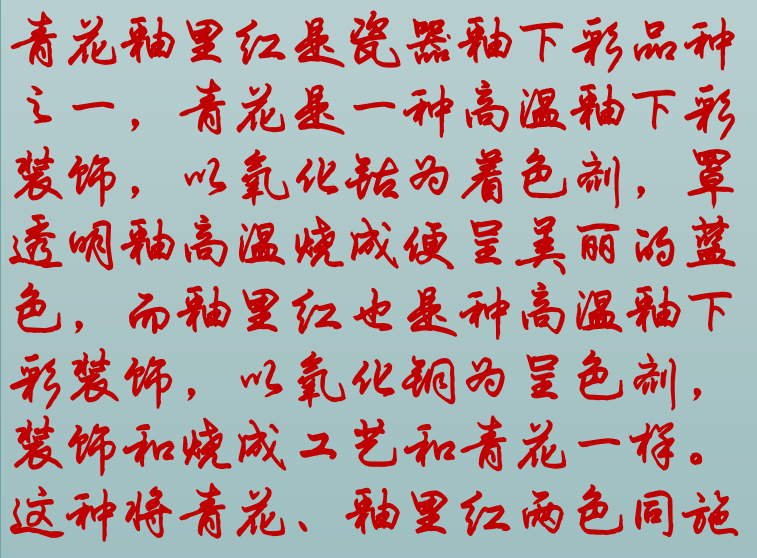 青花釉里红是瓷器釉下彩品种
之一，青花是一种高温釉下彩
装饰，以氧化钴为着色剂，罩
透明釉高温烧成便呈美丽的蓝
色，而釉里红也是种高温釉下
彩装饰，以氧化铜为呈色剂，
装饰和烧成工艺和青花一样。
这种将青花、釉里红两色同施